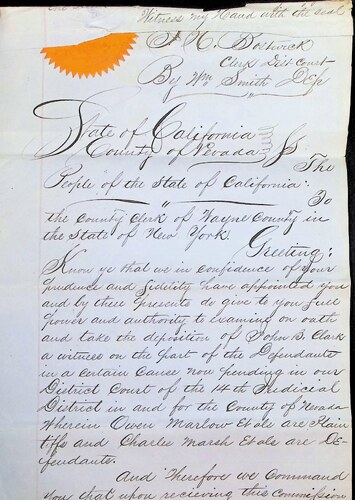 Witness my Hand with the seal
J. H. Bostwick
Clerk Dist Court
By Wm Smith Dep
State of California
County of Nevada } SS The
People of the State of California: To
the County Clerk of Wayne County in
the State of New York.
Greeting:
Know ye that we in confidence of your
prudence and fidelity have appointed you
and by these presents do give to you full
power and authority to examine on oath
and take the deposition of John B. Clark
a witness on the part of the Defendants
in a certain Cause now pending in our
District Court of the 14th Judicial
District in and for the County of Nevada
Wherein Owen Marlow Et als are Plain
tiffs and Charles Marsh Et als are De-
fendants.
And Therefore we Command
you that upon recieving this Commission